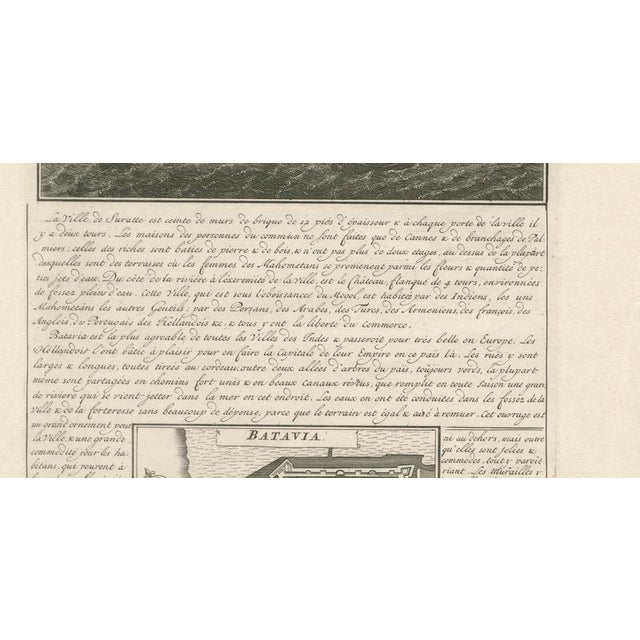 La Ville de Suratte est ceinte de murs de brique de 12 piés d'épaisseur & à chaque porte de la ville il
y a deux tours. Les maisons des personnes du commun ne sont faites que de Cannes & de branchages de Pal-
miers: celles des riches sont baties de pierre & de bois, & n'ont pas plus de deux etages, au dessus de la plupart
desquelles sont des terrasses où les femmes des Mahometans se promenent parmi les fleurs & quantité de pe-
tits jets d'eau. Du côté de la riviere à l'exeremité de la ville, est le Château, flanqué de 4 tours, environnées
de fossez pleins d'eau. Cette Ville, qui est sous l'obeissance du Mogol, est habitée par des Indiens, les uns
Mahometans les autres Gentils: par des Persans, des Arabes, des Turcs, des Armeniens, des françois, des
Anglois, des Portugais des Hollandois &c. & tous y ont la liberté du Commerce.
Batavia est la plus agreable de toutes les Villes des Indes & passeroit pour très belle en Europe. Les
Hollandois l'ont bâtie à plaisir pour en faire la Capitale de leur Empire en ce païs là. Les rües y sont
larges & longues, toutes tirées au cordeau, outre deux allées d'arbres du païs, toujours verds, la plupart
meme sont partagées en chemins fort unis & en beaux Canaux revêtus, que remplit en toute saison une gran-
de riviere qui se vient jetter dans la mer en cet endroit. Les eaux en ont été conduites dans les fossez de la
ville & de la forteresse sans beaucoup de dépense, parce que le terrain est égal & aisé à remuer. Cet ouvrage est
un grand ornement pour
la Ville, & une grande
commodité pour les ha-
bitans, qui peuvent à
BATAVIA.
ni au dehors, mais outre
qu'elles sont jolies &
commodes, tout y paroit
riant. Les Murailles y